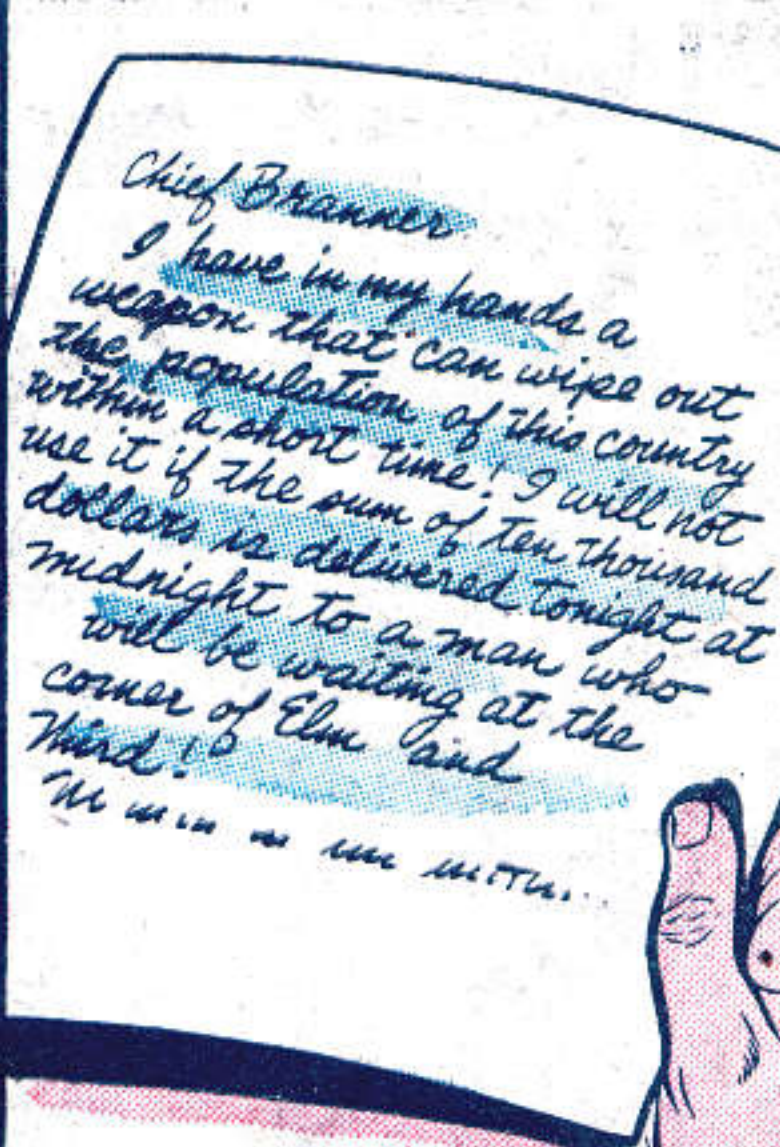 Chief Branner
I have in my hands a
weapon that can wipe out
the population of this country
within a short time! I will not
use it if the sum of ten thousand
dollars is delivered tonight at
midnight to a man who
will be waiting at the
corner of Elm and
Third!